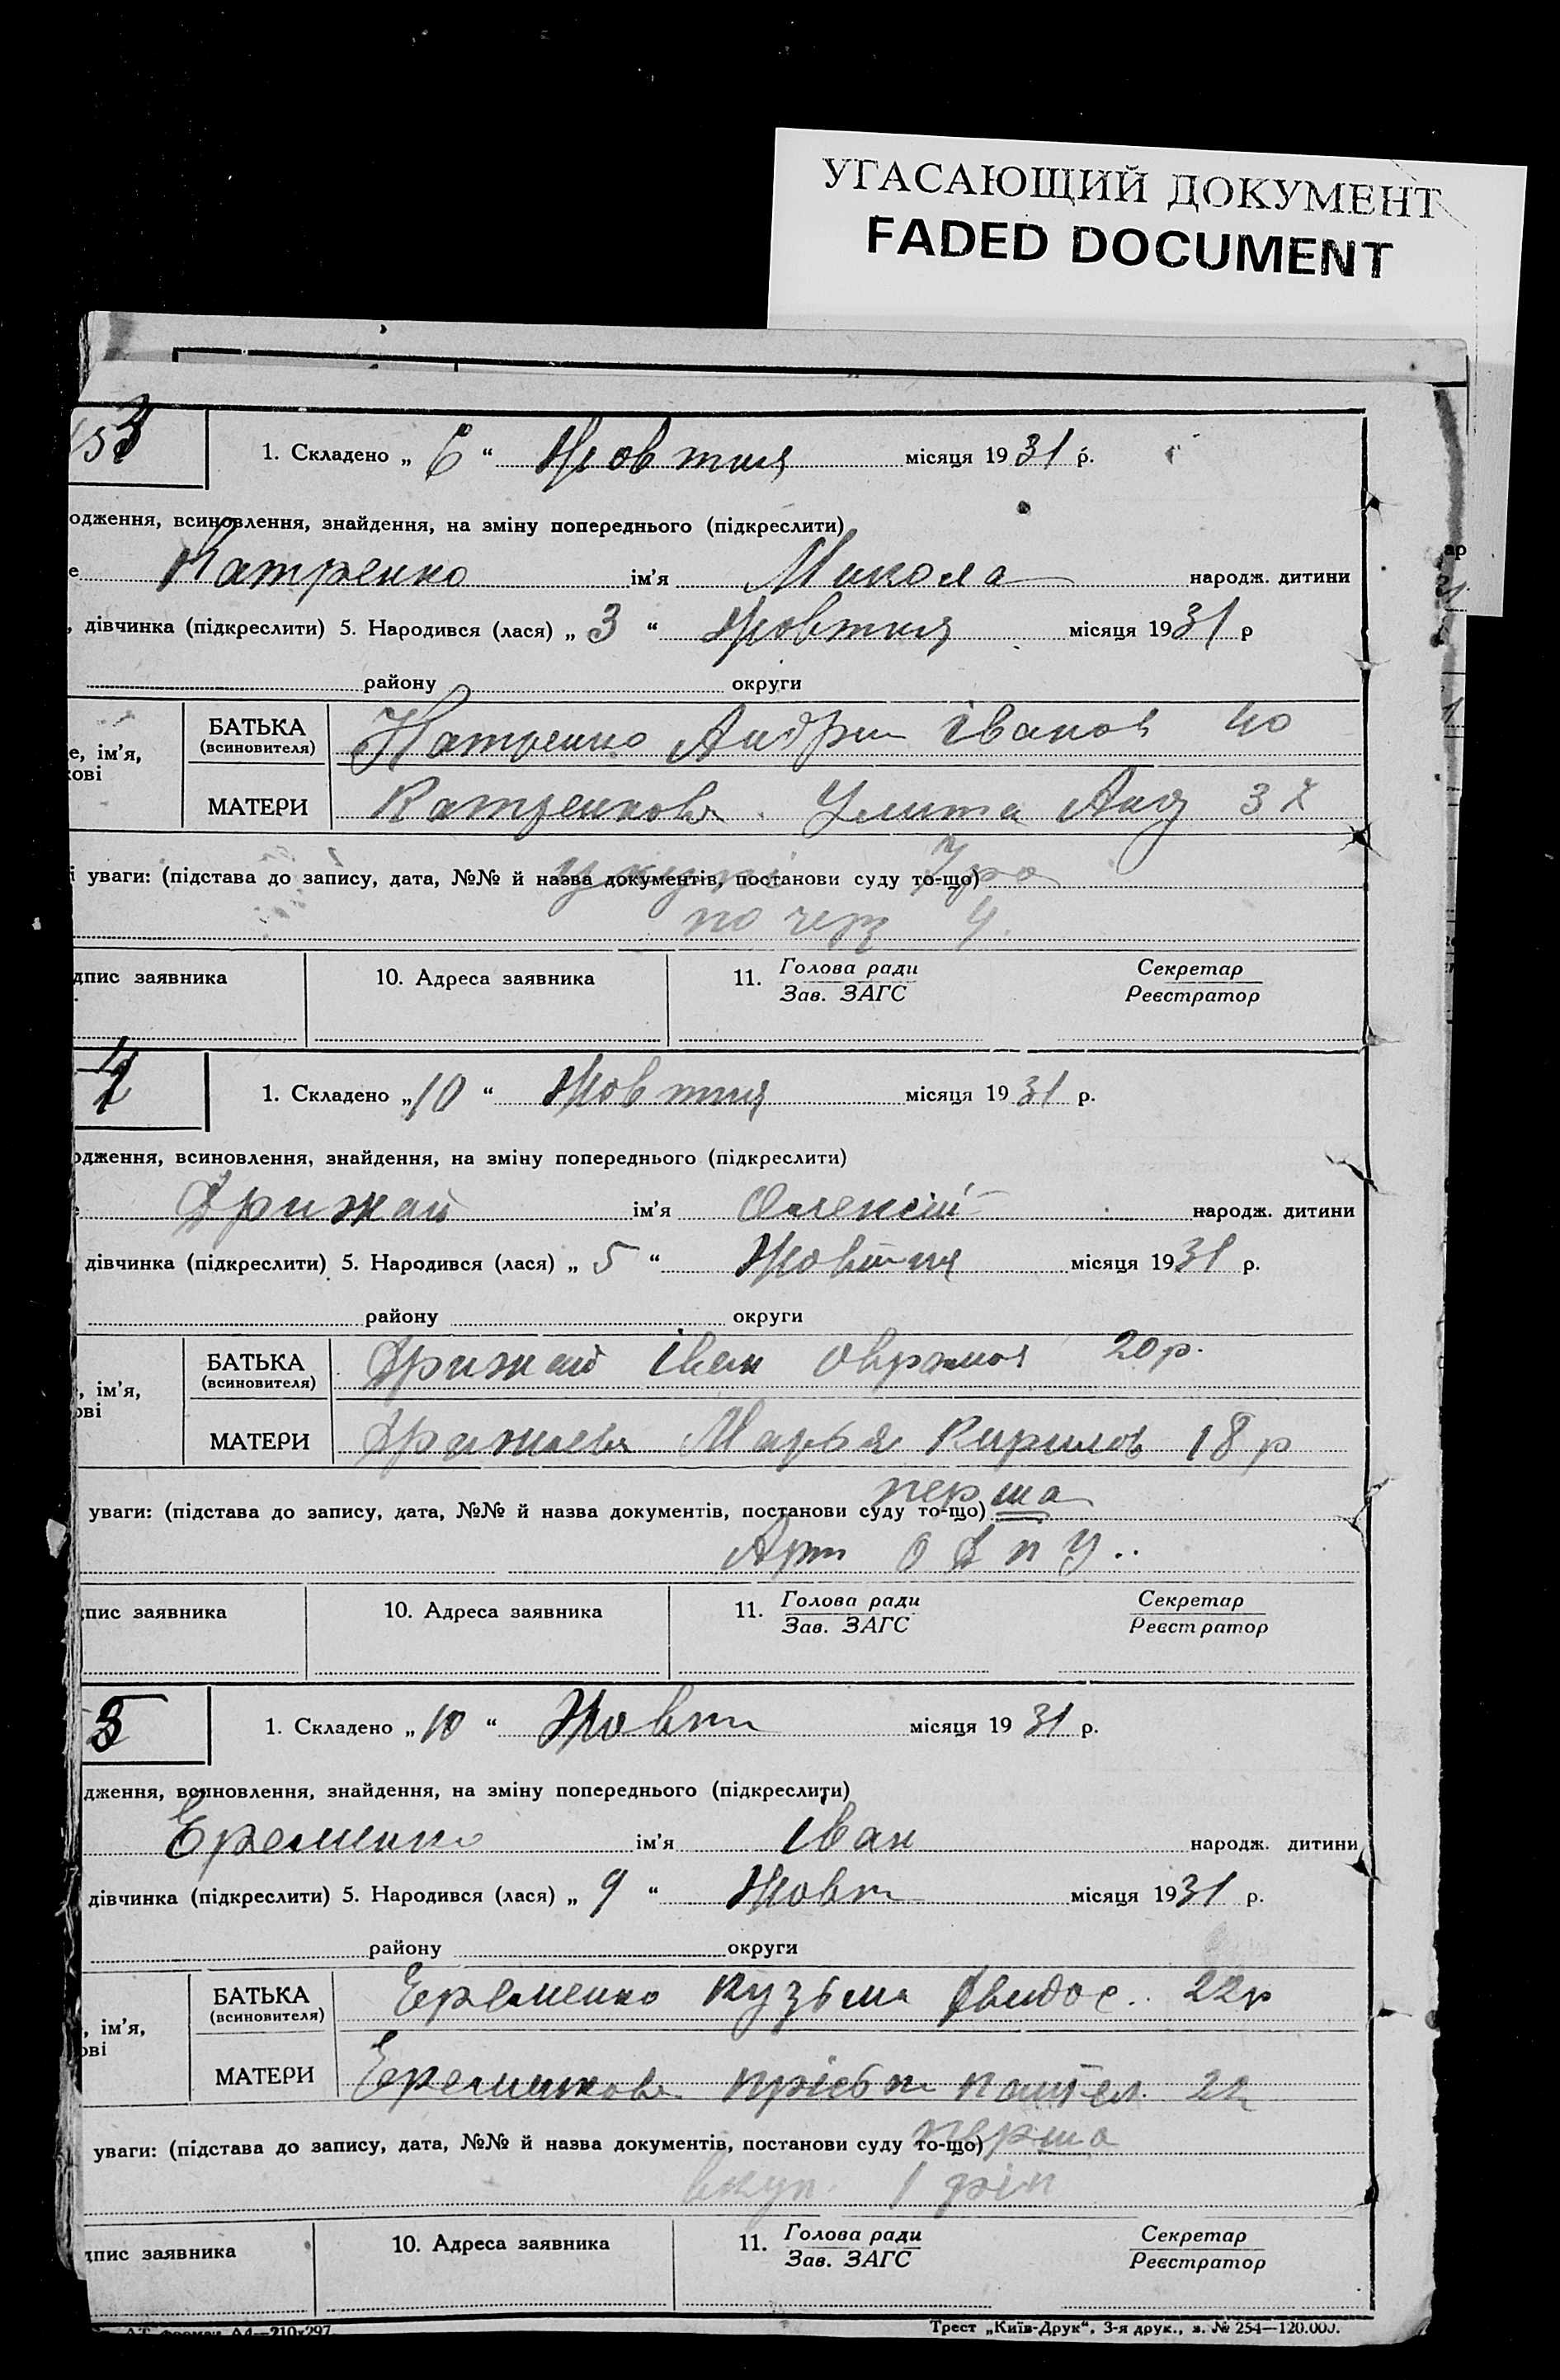 УГАСАЮЩИЙ ДОКУМЕНТ
FADED DOCUMENT
153
1. Складено „ 6 “ Жовтня місяця 1931 р.
одження, всиновлення, знайдення, на зміну попереднього (підкреслити)
е Катренко ім'я Микола народж. дитини
, дівчинка (підкреслити) 5. Народився (лася) „ 3 “ Жовтня місяця 1931 р
району округи
БАТЬКА
(всиновителя)
Катренко Андрій Іванов 40
е, ім'я,
кові
МАТЕРИ
Катренкова Улита Анд 37
і уваги: (підстава до запису, дата, №№ й назва документів, постанови суду то-що)
по черз 4.
дпис заявника
10. Адреса заявника
11. Голова ради
Зав. ЗАГС
Секретар
Реєстратор
4
1. Складено „ 10 “ Жовтня місяця 1931 р.
одження, всиновлення, знайдення, на зміну попереднього (підкреслити)
Дрижай ім'я Олексій народж. дитини
дівчинка (підкреслити) 5. Народився (лася) „ 5 “ Жовтня місяця 1931 р.
району округи
БАТЬКА
(всиновителя)
Дрижай Іван 20 р.
, ім'я,
ові
МАТЕРИ
Дрижаева Марья Кирилов 18 р
перша
уваги: (підстава до запису, дата, №№ й назва документів, постанови суду то-що)
Арт
пис заявника
10. Адреса заявника
11. Голова ради
Зав. ЗАГС
Секретар
Реєстратор
5
1. Складено „ 10 “ Жовтн місяця 1931 р.
дження, всиновлення, знайдення, на зміну попереднього (підкреслити)
Еременко ім'я Іван народж. дитини
дівчинка (підкреслити) 5. Народився (лася) „ 9 “ Жовт місяця 1931 р.
району округи
БАТЬКА
(всиновителя)
Еременко Кузьма 22 р
, ім'я,
ові
МАТЕРИ
Еременкова 22
перша
уваги: (підстава до запису, дата, №№ й назва документів, постанови суду то-що)
вкуп. 1 рік
дпис заявника
10. Адреса заявника
11. Голова ради
Зав. ЗАГС
Секретар
Реєстратор
А4—210х297
Трест „Київ-Друк“, 3-я друк., з. № 254—120.000.